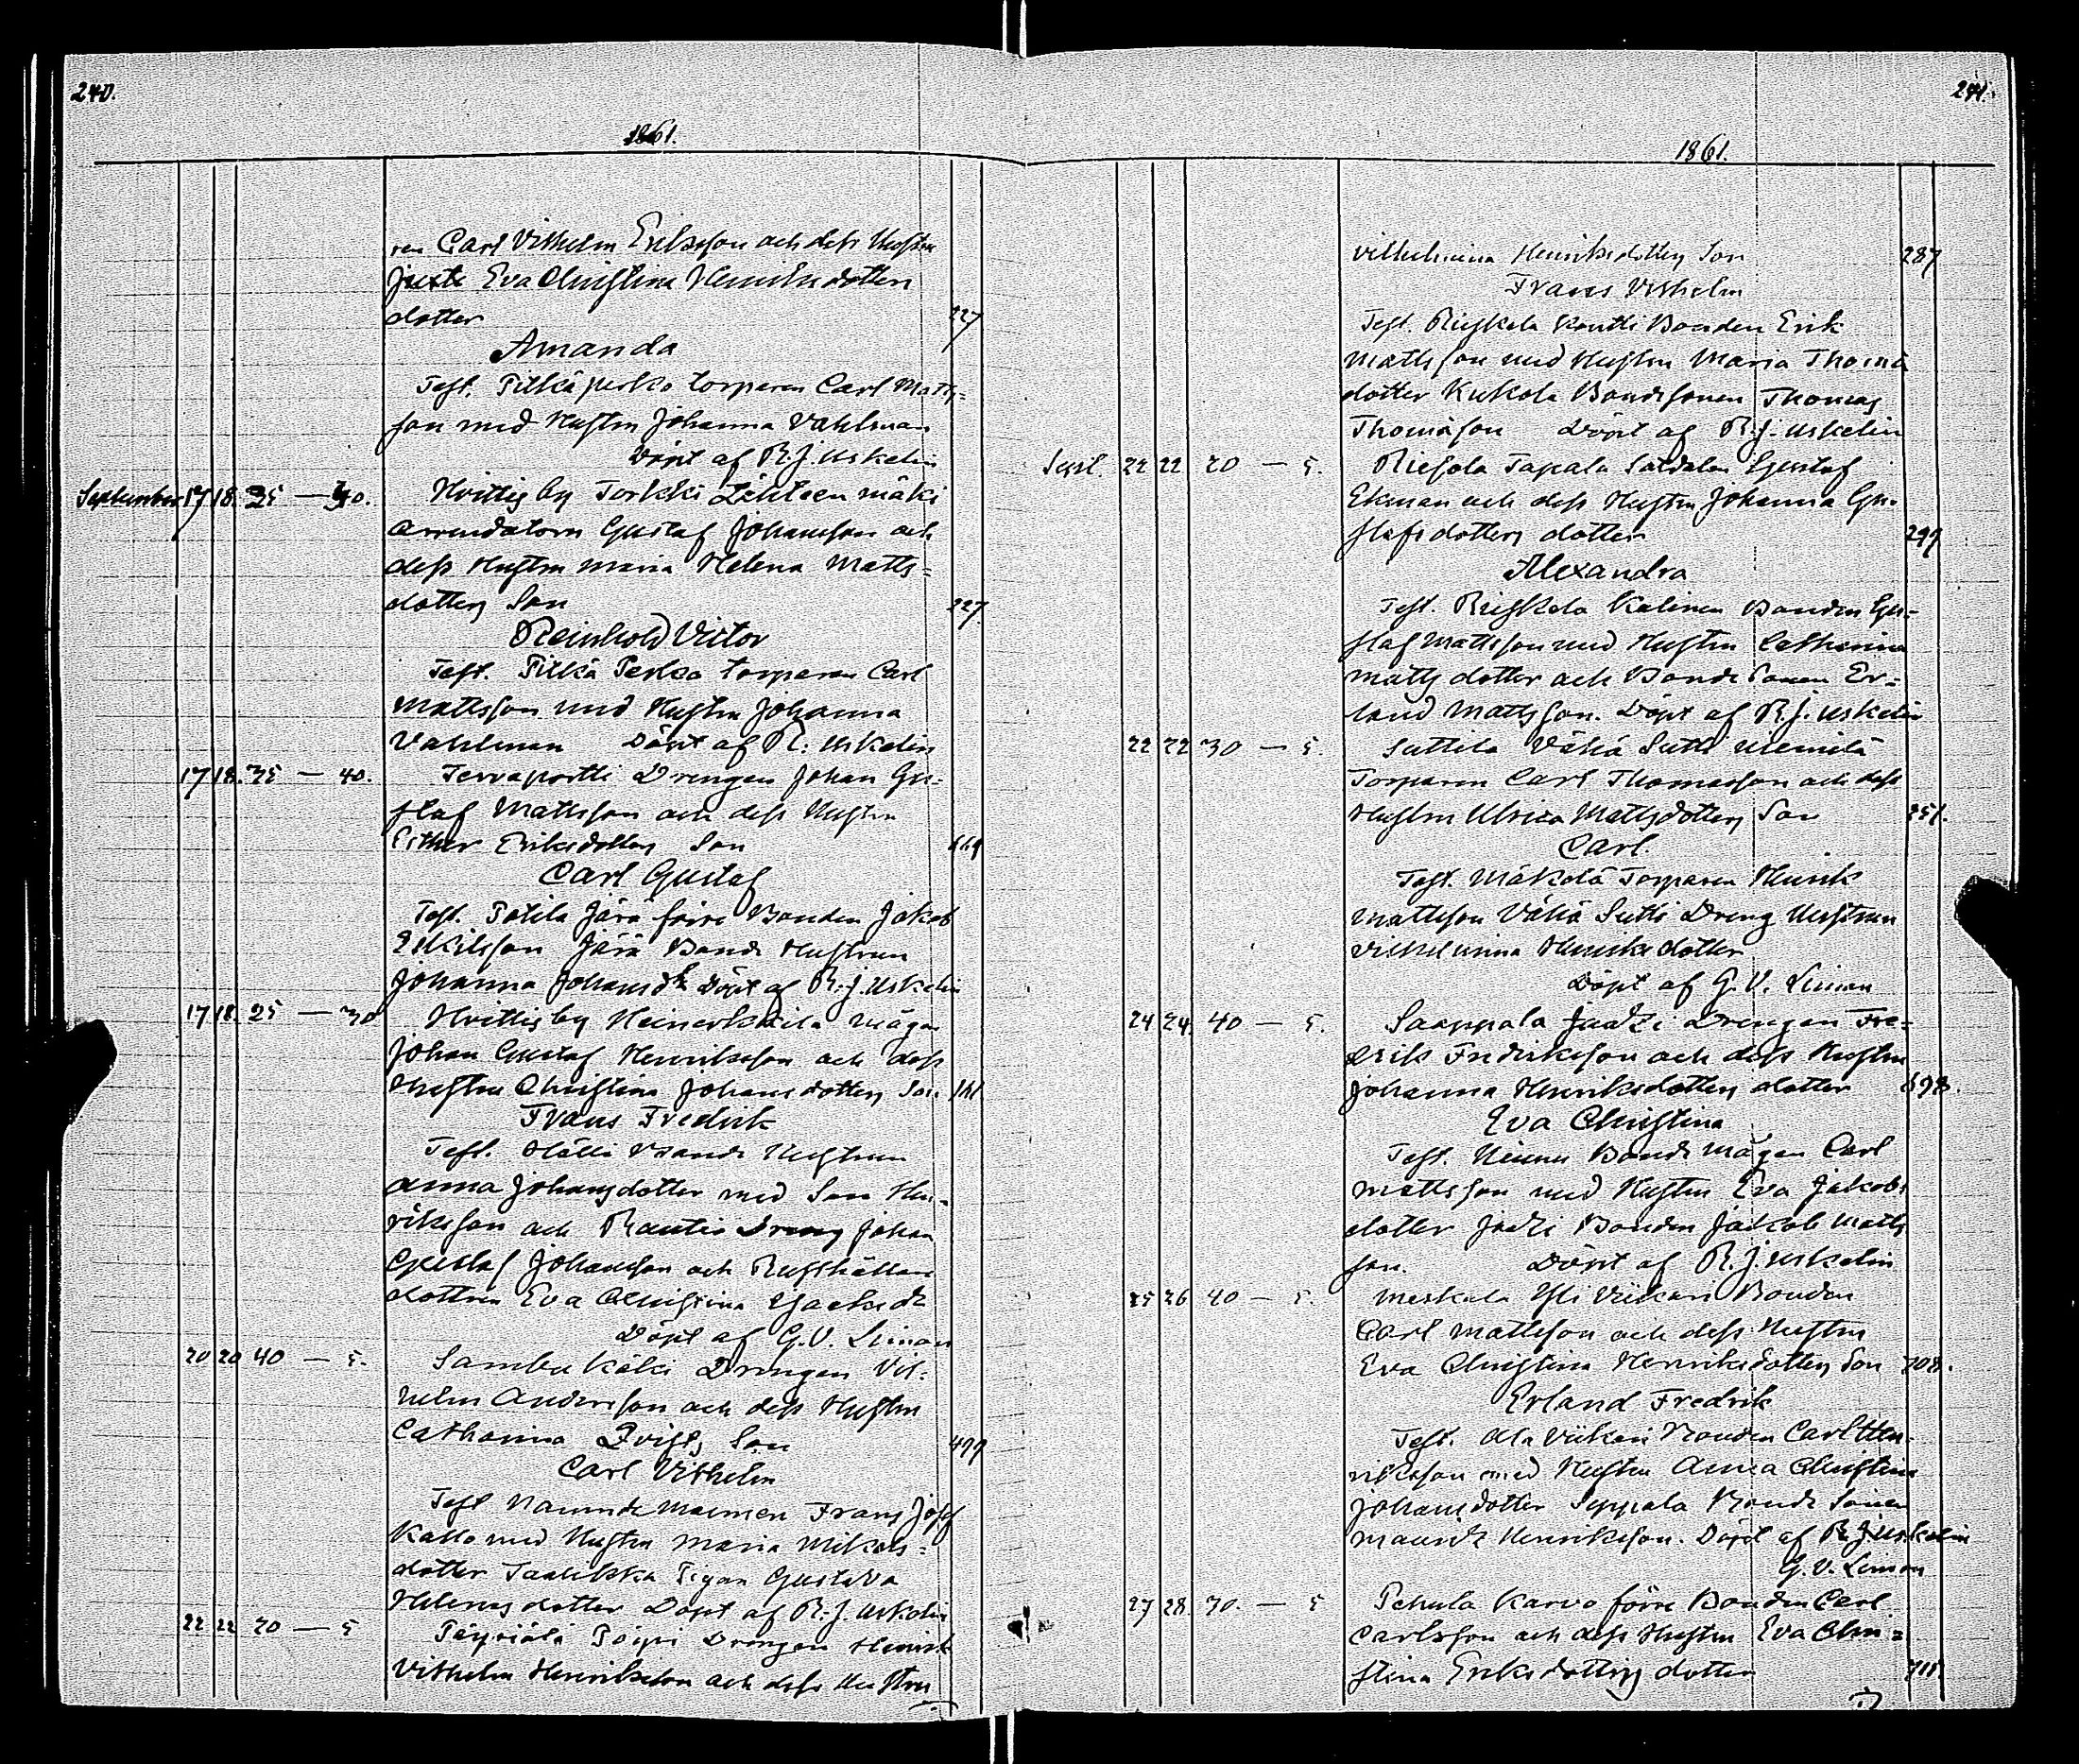 240.
1861.
ren Carl Vilhelm Eriksson och dess Hustru
Eva Christina Henriksdotters
dotter 227
Amanda
Test. Pitkäperko torparen Carl Matts=
son med Hustru Johanna Vahlman
Döpt af R.J. Uskelin
September 17 18. 35 — 40. Hvittis by Torkki Lähteen mäki
arrendatorn Gustaf Johansson och
dess Hustru Maria Helena Matts=
dotters Son 227
Reinhold Victor
Test. Pitkä Perko torparen Carl
Mattsson med Hustru Johanna
Vahlman Döpt af R: Uskelin
17 18. 35 — 40. Tervaportti Drengen Johan Gu=
staf Mattsson och dess Hustru
Esther Eriksdotters Son
Carl Gustaf
Test. Potila Järä förre Bonden Jakob
Eskilsson Järä Bonde Hustrun
Johanna Johansdr Döpt af R.J. Uskelin
17 18. 25 — 30 Hvittis by Heinerkkilä mågen
Johan Gustaf Henriksson och dess
Hustru Christina Johansdotters Son 161
Frans Fredrik
Test. Hölli Bonde Hustrun
Anna Johansdotter med Son Hen-
riksson och Rautio Dreng Johan
Gustaf Johansson och Rusthållare
dottren Eva Christina Isaksdr
Döpt af G.V. Liman
20 20 40 — 5. Sambu Käki Drengen Vil=
helm Andersson och dess Hustru
Catharina Qvists Son 499
Carl Vilhelm
Test Frans Josef
Kallo med Hustru Maria Mikels=
dotter Taalikka Pigan Gustava
Helenasdotter Döpt af R.J. Uskelin
22 22 20 — 5 Pöyriälä Pöyri Drengen Henrik
Vilhelm Henriksson och dess Hustru
241.
1861.
Vilhelmina Henriksdotters Son 287
Frans Vilhelm
Test. Rieskala Kontti Bonden Erik
Mattsson med Hustru Maria Thomæ
dotter Kukola Bondesonen Thomas
Thomasson Döpt af R.J. Uskelin
Sept. 22 22 20 — 5. Riesola Tapala Soldaten Gustaf
Ekman och dess Hustru Johanna Gu-
stafsdotters dotter 299
Alexandra
Test. Rieskala Kalinen Bonden Gu=
staf Mattsson med Hustru Catharina
Mattsdotter och Bonde Sonen Er=
land Mattsson. Döpt af R.J. Uskelin
22 22 30 — 5. Suttila Vähä Sutti Uusnitä
Torparen Carl Thomasson och dess
Hustru Ulrica Mattsdotters Son 351.
Carl.
Test. Mäkelä Torparen Henrik
Mattsson Vähä Sutti Dreng Hustrun
Vilhelmina Henriksdotter
Döpt af G.V. Liman
24 24. 40 — 5. Saappala Jaakki Drengen Fre=
drik Fredriksson och dess Hustru
Johanna Henriksdotters dotter 698.
Eva Christina
Test. Bonde Mågen Carl
Mattsson med Hustru Eva Jakobs
dotter Bonden Jakob Matts
son. Döpt af R.J. Uskelin
25 26 40 — 5. Meskala Yli Viikari Bonden
Carl Mattsson och dess Hustru
Eva Christina Henriksdotters Son 708.
Erland Fredrik
Test. Ala Viikari Bonden Carl Hen-
riksson med Hustru Anna Christina
Johansdotter Seppälä Bonde Sonen
Henriksson. Döpt af R.J. Uskelin
G.V. Liman
27 28. 30. — 5 Pehula Karvo förre Bonden Carl
Carlsson och dess Hustru Eva Chri=
stina Eriksdotters dotter 711